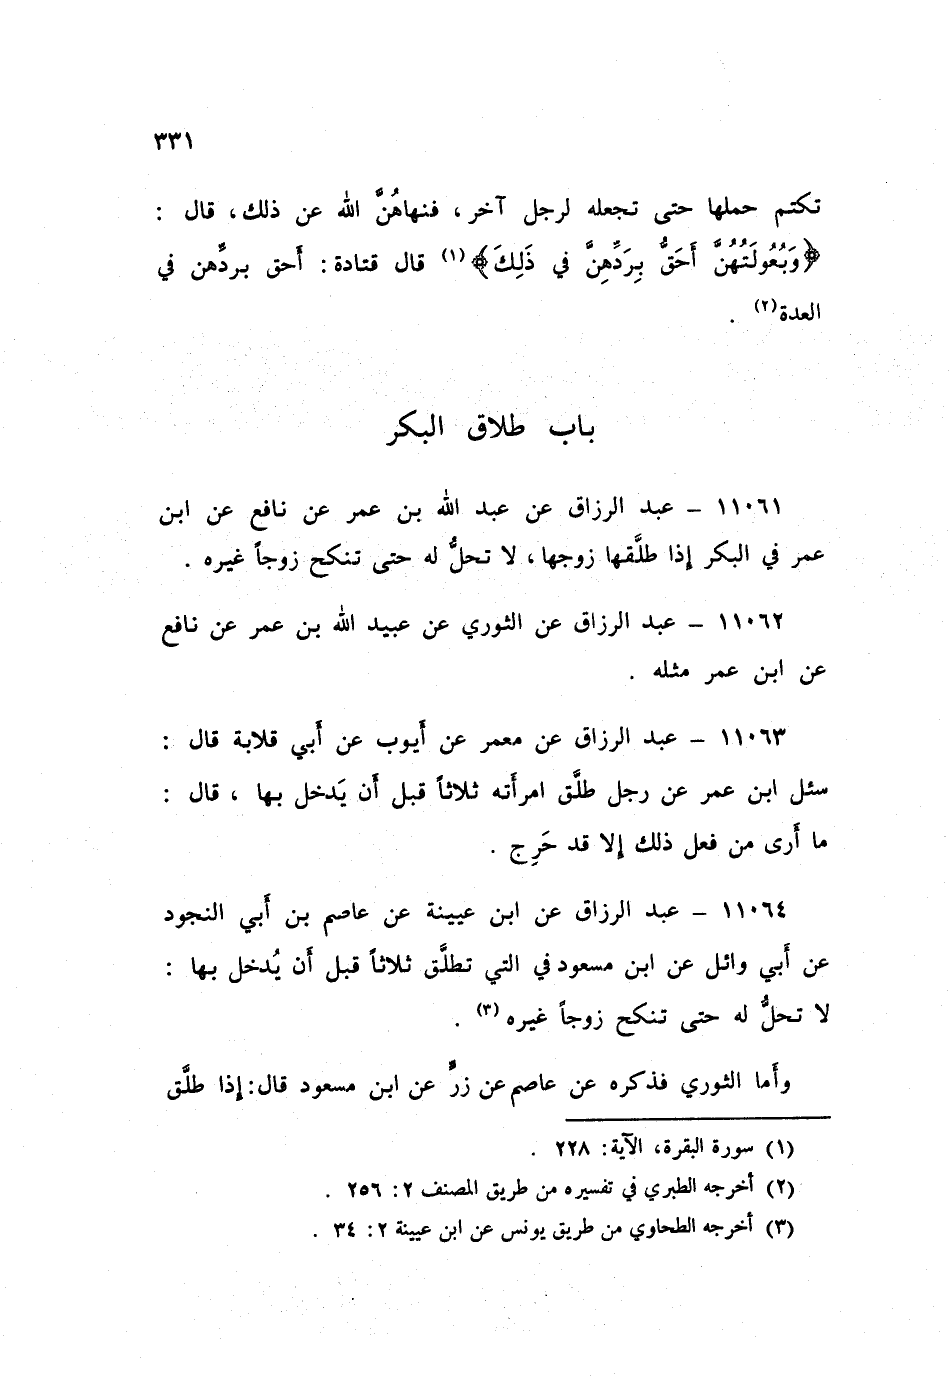 ٣٣١
تكتم حملها حتى تجعله لرجل آخر، فنهاهُنَّ الله عن ذلك، قال :
﴿وَبُعُولَتُهُنَّ أَحَقُّ بِرَدِّهِنَّ في ذَلِكَ﴾(١) قال قتادة : أَحق بردِّهن في
العدة(٢) .
باب طلاق البكر
١١٠٦١ – عبد الرزاق عن عبد الله بن عمر عن نافع عن ابن
عمر في البكر إذا طلَّقها زوجها، لا تحلُّ له حتى تنكح زوجاً غيره .
١١٠٦٢ – عبد الرزاق عن الثوري عن عبيد الله بن عمر عن نافع
عن ابن عمر مثله .
١١٠٦٣ – عبد الرزاق عن معمر عن أَيوب عن أَبي قلابة قال :
سئل ابن عمر عن رجل طلَّق امرأَته ثلاثاً قبل أَن يَدخل بها ، قال :
ما أَرى من فعل ذلك إلا قد حَرِج .
١١٠٦٤ – عبد الرزاق عن ابن عيينة عن عاصم بن أَبي النجود
عن أَبي وائل عن ابن مسعود في التي تطلَّق ثلاثاً قبل أَن يُدخل بها :
لا تحلُّ له حتى تنكح زوجاً غيره(٣) .
وأَما الثوري فذكره عن عاصم عن زرٍّ عن ابن مسعود قال: إذا طلَّق
(١) سورة البقرة، الآية: ٢٢٨ .
(٢) أخرجه الطبري في تفسيره من طريق المصنف ٢: ٢٥٦ .
(٣) أخرجه الطحاوي من طريق يونس عن ابن عيينة ٢: ٣٤ .